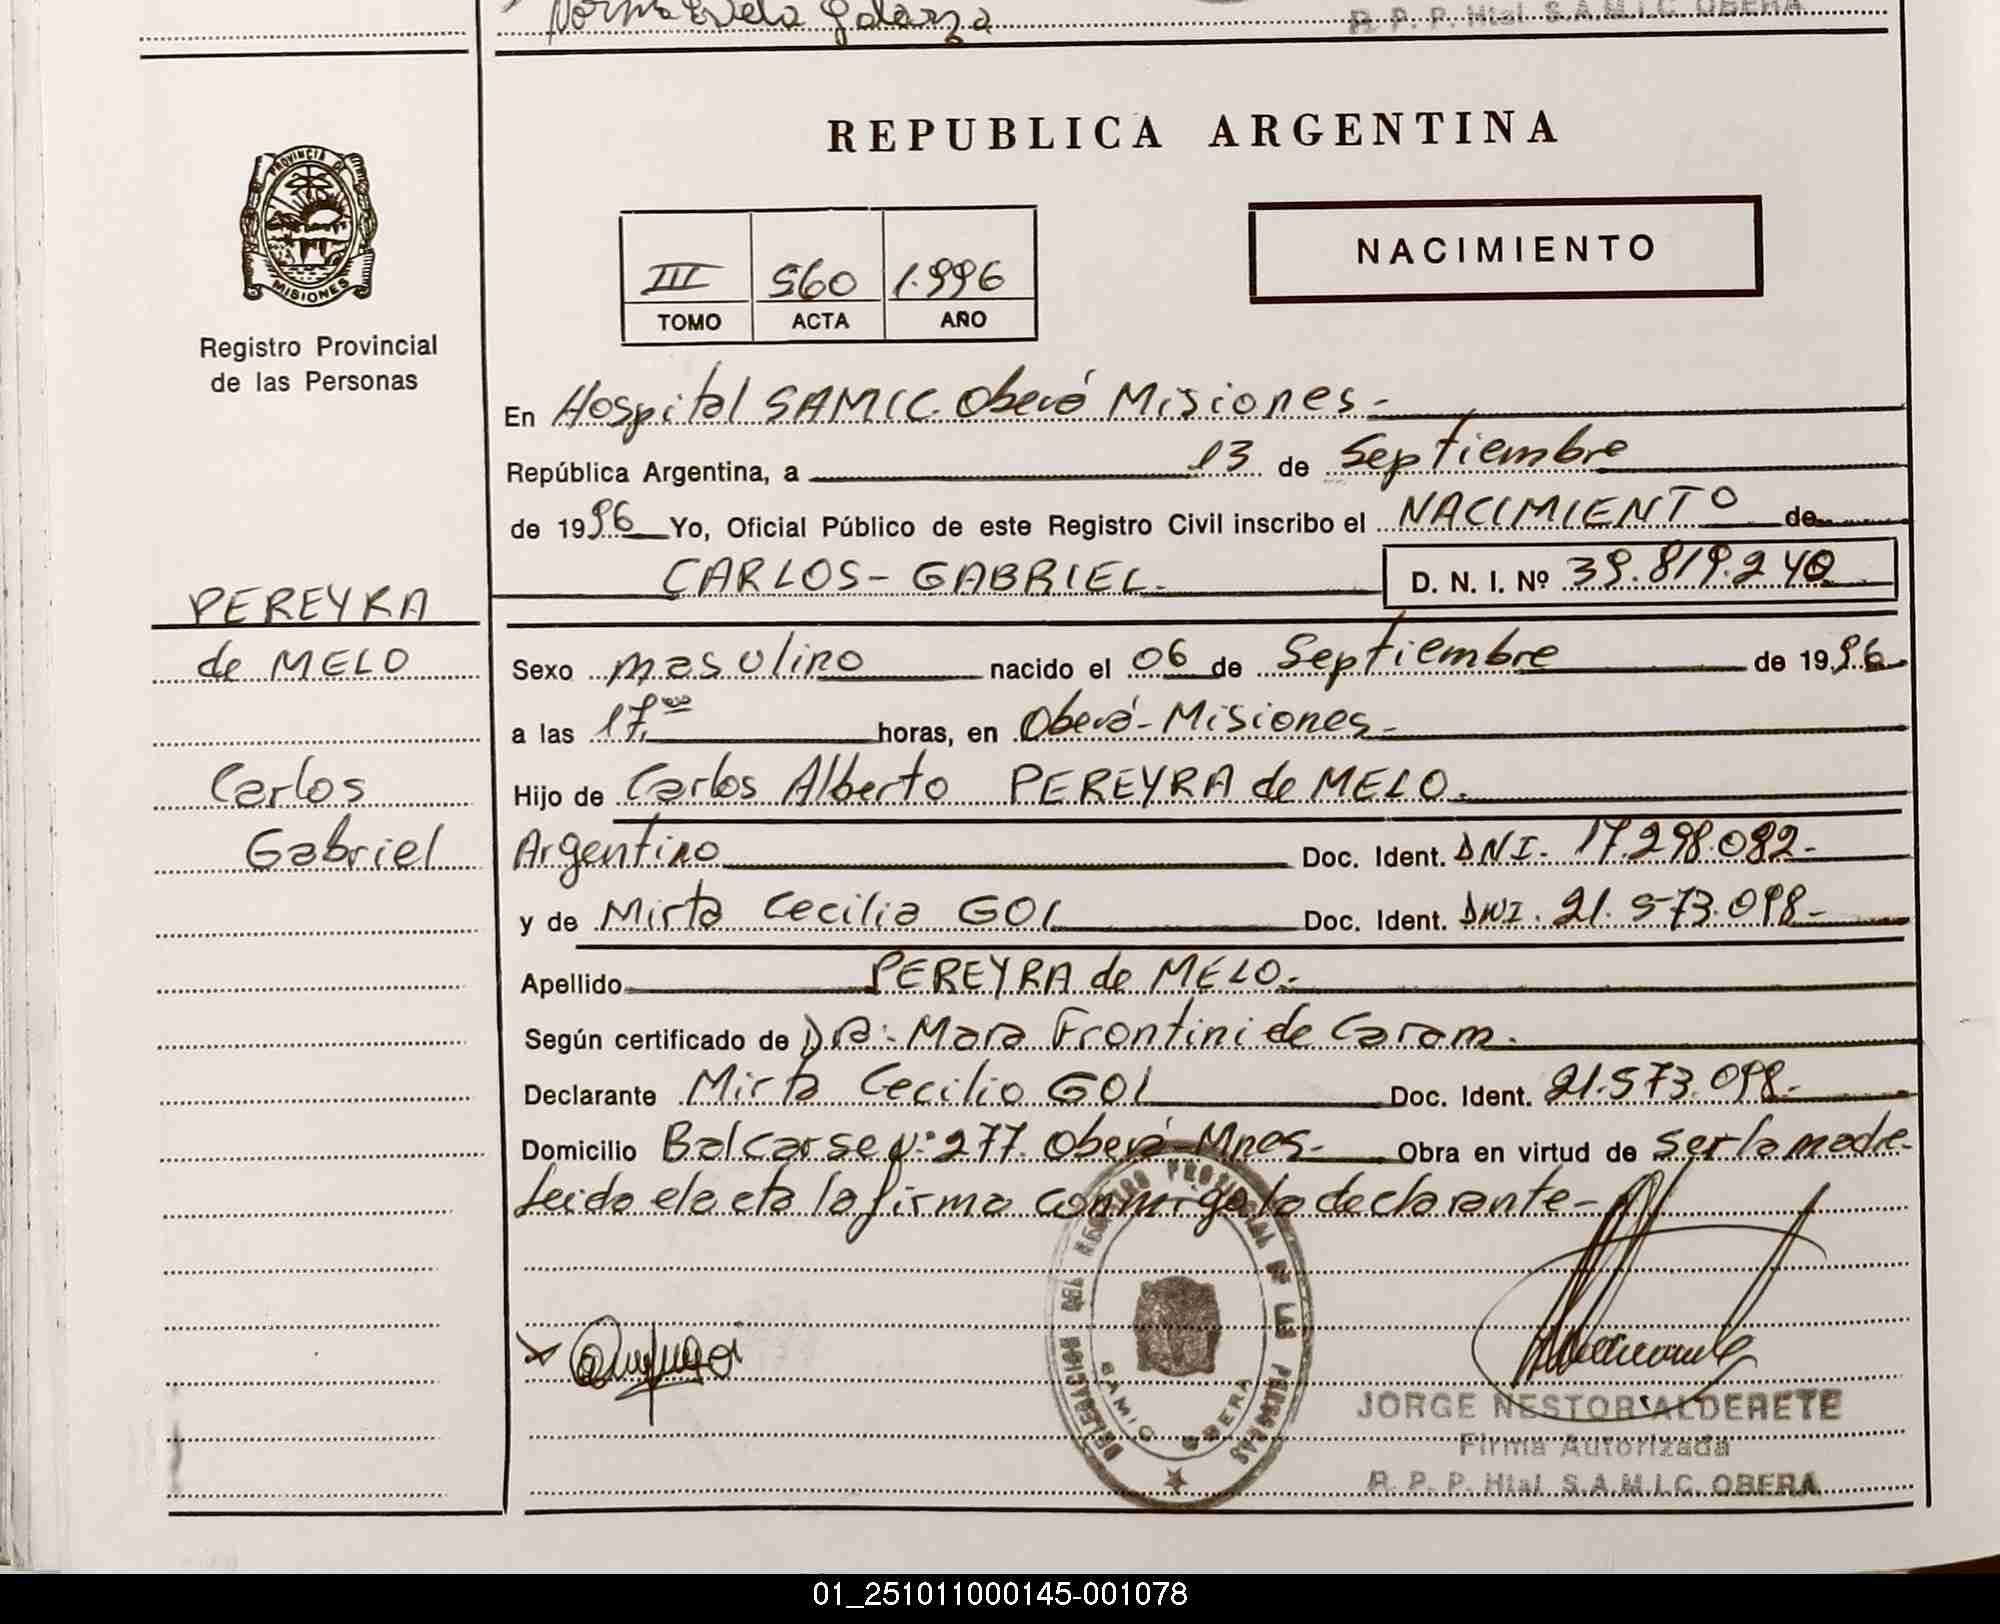 Norma Estela Galarza
R. P. P. Htal S.A.M.I.C. OBERA
PROVINCIA DE
MISIONES
Registro Provincial
de las Personas
REPUBLICA ARGENTINA
III 560 1.996
TOMO ACTA AÑO
NACIMIENTO
En Hospital SAMIC. Oberá Misiones-
República Argentina, a 13 de Septiembre
de 1996 Yo, Oficial Público de este Registro Civil inscribo el NACIMIENTO de
CARLOS- GABRIEL- D. N. I. Nº 39.819.240
PEREYRA
de MELO
Carlos
Gabriel
Sexo masulino nacido el 06 de Septiembre de 1996
a las 17,00 horas, en Oberá-Misiones-
Hijo de Carlos Alberto PEREYRA de MELO.
Argentino Doc. Ident. DNI- 17.298.092-
y de Mirta Cecilia GOI Doc. Ident. DNI. 21.573.098-
Apellido PEREYRA de MELO.-
Según certificado de DRA: Mara Frontini de Caram.
Declarante Mirta Cecilia GOI Doc. Ident. 21.573.098-
Domicilio Balcarse Nº 277. Oberá Mnes- Obra en virtud de ser la madre-
Leida el acta la firma conmigo la declarante-
DELEGACION DEL REGISTRO PROVINCIAL DE LAS PERSONAS
SAMIC OBERA
JORGE NESTOR ALDERETE
Firma Autorizada
R. P. P. Htal S.A.M.I.C. OBERA
01_251011000145-001078